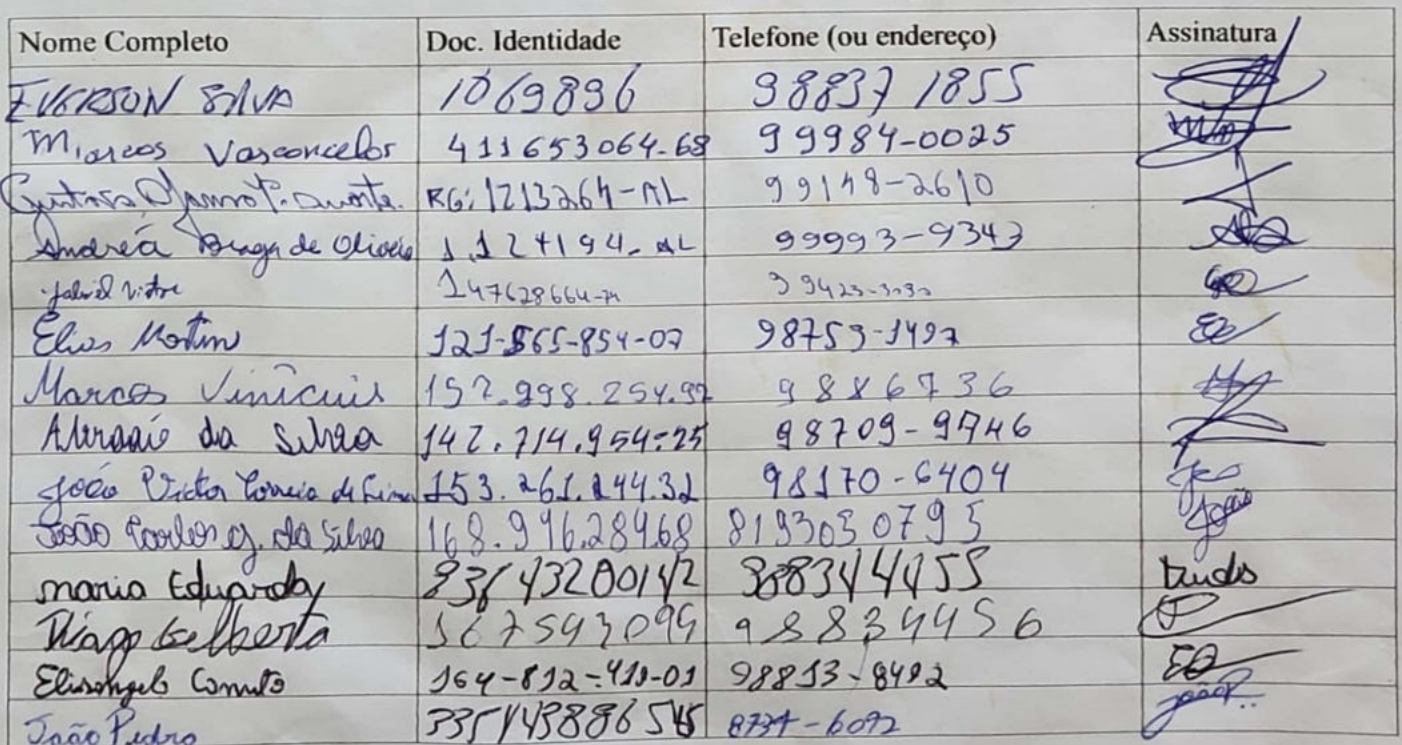 Nome Completo Doc. Identidade Telefone (ou endereço) Assinatura
EVERSON SILVA 1069896 988371855
Marcos Vasconcelos 411653064-68 99984-0025
RG: 1213264-AL 99148-2610
Andréa Braga de Oliveira 1.124194-AL 99993-9343
Gabriel Victor 147628664-74
Elias Martins 121-565-854-07 98753-1497
Marcos Vinicius 152.998.254.97 9886736
da Silva 142.714.954-25 98709-9946
João Victor Correia de Lima 153.261.244.32 98170-6404 João
João Carlos G. da Silva 168.996.284.68 8193030793 João
maria Eduarda 988344455 Duda
Thiago Gilberto 167593099 988344456
Elisangela 164-812-411-01 98813-8492
João Pedro 8734-6092 joãoP..